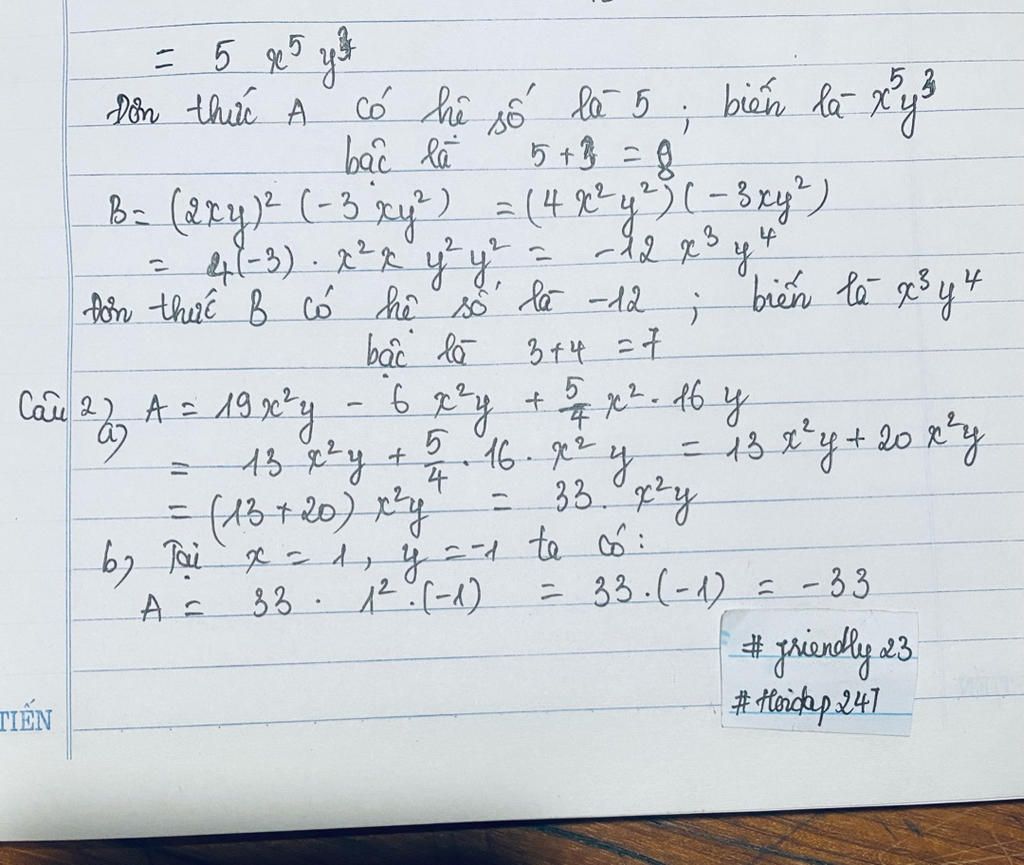 = 5 x⁵ y³
Đơn thức A có hệ số là 5 ; biến là x⁵y³
bậc là 5 + 3 = 8
B = (2xy)² (-3 xy²) = (4 x² y²)(-3xy²)
= 4(-3) . x² x y² y² = -12 x³ y⁴
Đơn thức B có hệ số là -12 ; biến là x³y⁴
bậc là 3+4 = 7
Câu 2) A = 19x²y - 6 x²y + 5/4 x² . 16 y
a)
= 13 x²y + 5/4 . 16 . x² y = 13 x²y + 20 x²y
= (13 + 20) x²y = 33. x²y
b) Tại x = 1 , y = -1 ta có :
A = 33 . 1² . (-1) = 33 . (-1) = -33
# friendly 23
# Hoidap 247
TIẾN